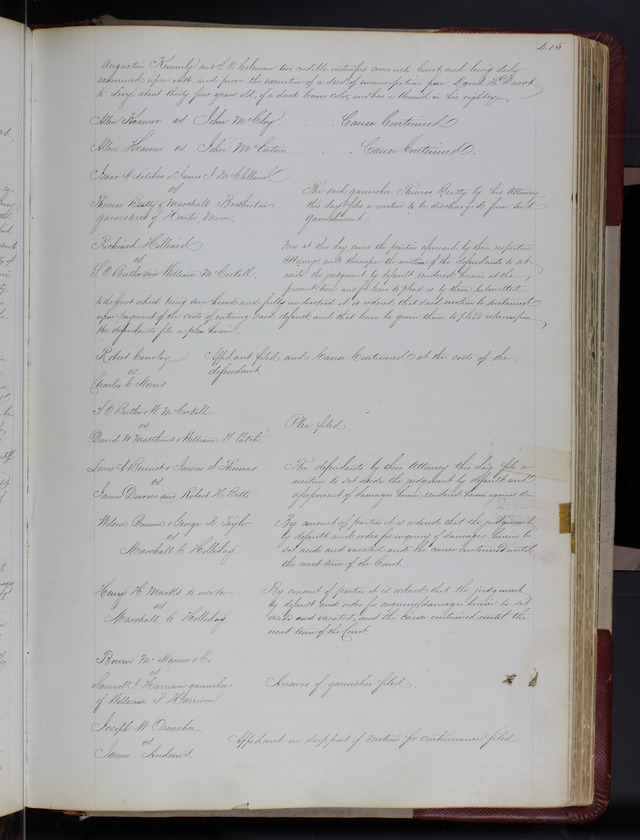 415
Augustin Kennerly and S. O. Coleman two credible witnesses come into Court, and being duly
examined upon oath, and prove the execution of a deed of emancipation from David H.
to Lucy, about thirty four years old, of a dark brown color, and has a blemish in her right eye
Allen Kramer vs John McCloy Cause Continued.
Allen Kramer vs John Cause Continued.
Isaac A. Letcher & James S. McClelland
vs
Thomas Beatty & Marshall Brotherton
garnishees of
The said garnishee Thomas Beatty by his Attorney
this day files a motion to be discharged from said
garnishment.
Richard Hilliard
vs
S. O. Butler and William McCorkell
Now at this day come the parties aforesaid by their respective
Attorneys, and thereupon the motion of the defendants to set
aside the judgment by default rendered herein at the
present term and for leave to plead is by them submitted
to the Court which being seen heard and fully understood it is ordered that said motion be sustained
upon payment of the costs of entering said default, and that leave be given them to plead whereupon
the defendants file a plea herein.
Robert
vs
Charles C. Norris
Affidavit filed and Cause Continued at the costs of the
defendant
S. O. Butler & W. McCorkell
vs
David W. Matthews & William T.
Plea filed
Lewis A. Benoist & James S. Thomas
vs
James and Robert H. Betts
The defendants by their Attorney this day file a
motion to set aside the judgment by default and
assessment of damages herein rendered herein against them
Wilson & George R. Taylor
vs
Marshall C. Holliday
By consent of parties it is ordered that the judgment
by default and order for inquiry of damages herein be
set aside and vacated and the cause continued until
the next term of the Court
Henry H. Marks to use
vs
Marshall C. Holliday
By consent of parties it is ordered that the judgment
by default and order for inquiry damages herein be set
aside and vacated, and the cause continued until the
next term of the Court.
Bowen McNamee & Co
vs
Samuel J. Harrison garnishee
of William J Harrison
Answer of garnishee filed.
Joseph W.
vs
James Andrews
Affidavit in support of motion for continuance filed